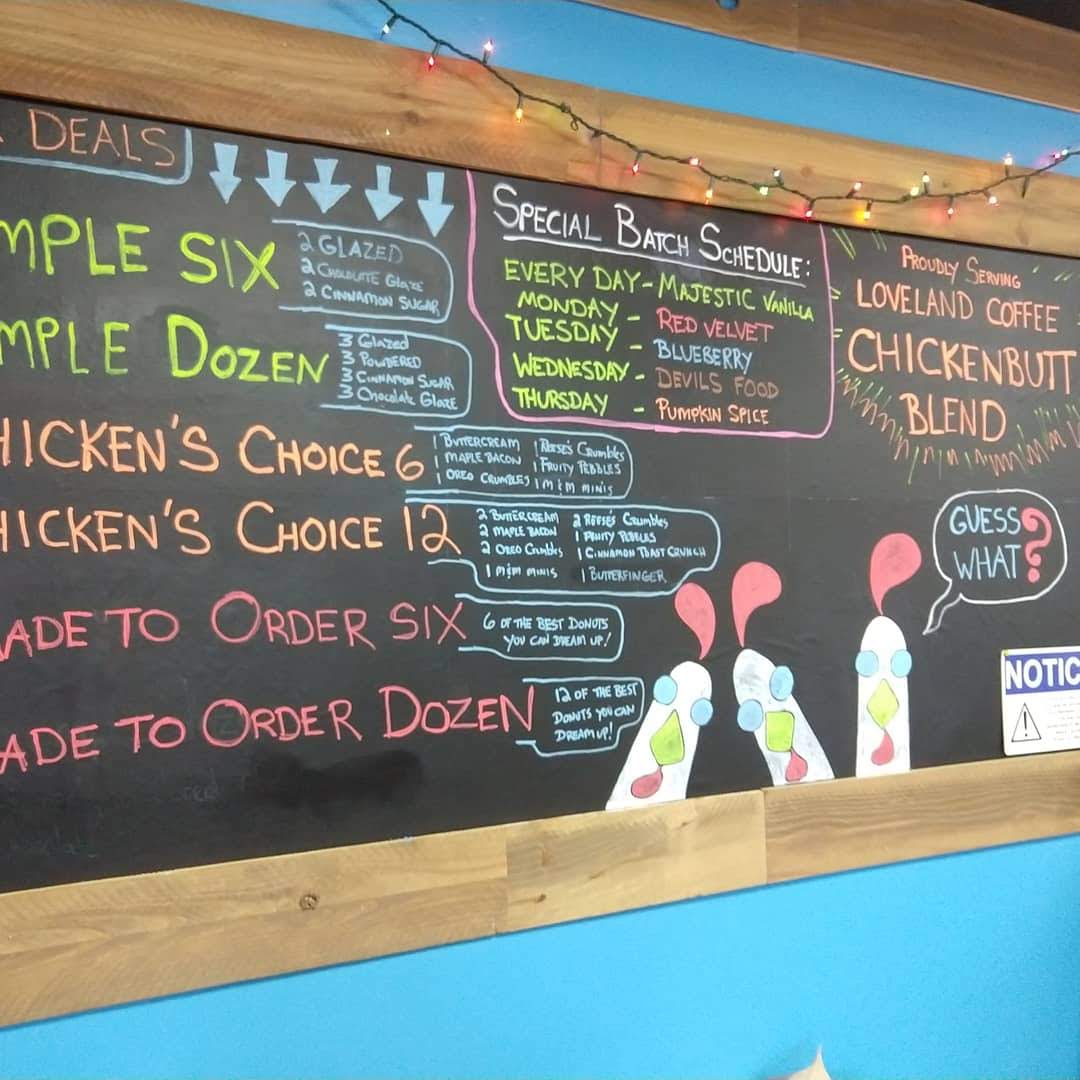 DEALS
MPLE SIX
2 GLAZED
2 CHOCOLATE GLAZE
2 CINNAMON SUGAR
MPLE DOZEN
3 Glazed
3 POWDERED
3 CINNAMON SUGAR
3 Chocolate GLAZE
HICKEN'S CHOICE 6
1 BUTTERCREAM 1 REESE'S Crumbles
1 MAPLE BACON 1 FRUITY PEBBLES
1 OREO CRUMBLES 1 M&M MINIS
HICKEN'S CHOICE 12
2 BUTTERCREAM 2 REESE'S Crumbles
2 MAPLE BACON 1 FRUITY PEBBLES
2 OREO Crumbles 1 CINNAMON TOAST CRUNCH
1 M&M MINIS 1 BUTTERFINGER
ADE TO ORDER SIX
6 OF THE BEST DONUTS
YOU CAN DREAM UP!
ADE TO ORDER DOZEN
12 OF THE BEST
DONUTS YOU CAN
DREAM UP!
SPECIAL BATCH SCHEDULE:
EVERY DAY - MAJESTIC VANILLA
MONDAY - RED VELVET
TUESDAY - BLUEBERRY
WEDNESDAY - DEVILS FOOD
THURSDAY - PUMPKIN SPICE
PROUDLY SERVING
LOVELAND COFFEE
CHICKENBUTT
BLEND
GUESS
WHAT?
NOTIC